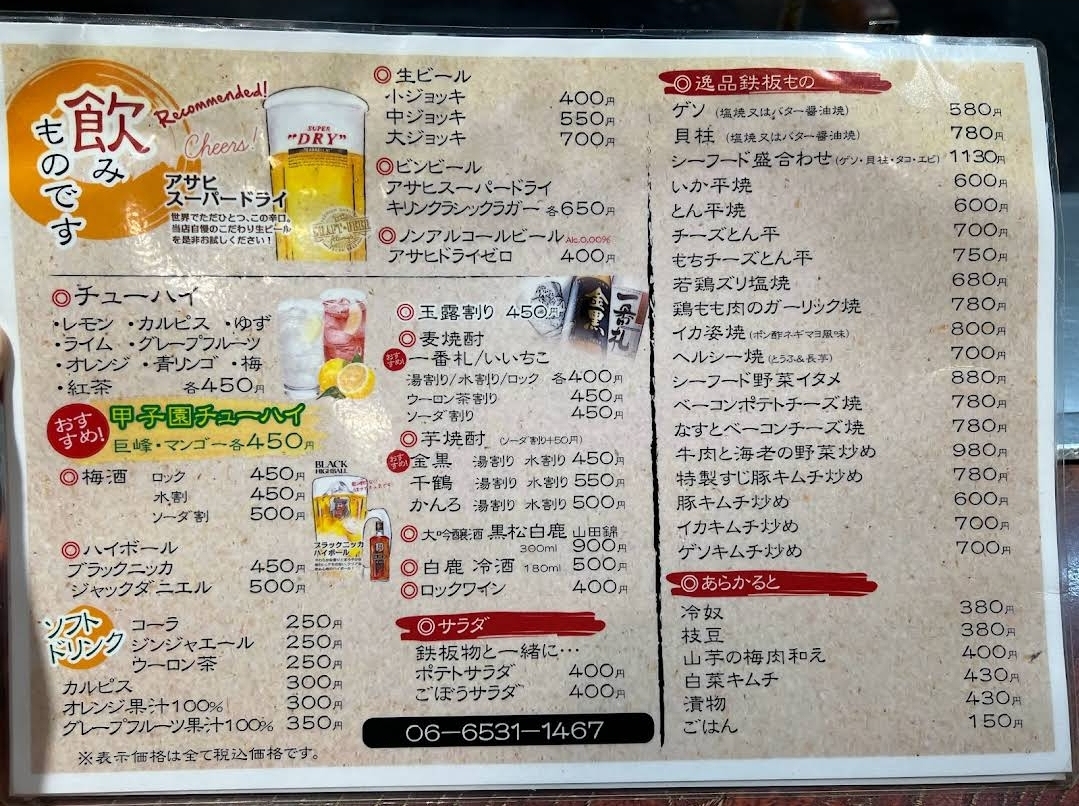 飲み
ものです
Recommended!
Cheers!
SUPER
"DRY"
アサヒ
スーパードライ
世界でただひとつ、この辛口。
当店自慢のこだわり生ビール
を是非お試しください!
◎生ビール
小ジョッキ 400円
中ジョッキ 550円
大ジョッキ 700円
◎ビンビール
アサヒスーパードライ
キリンクラシックラガー 各650円
◎ノンアルコールビール Alc.0.00%
アサヒドライゼロ 400円
◎チューハイ
・レモン ・カルピス ・ゆず
・ライム ・グレープフルーツ
・オレンジ ・青リンゴ ・梅
・紅茶 各450円
おすすめ!
甲子園チューハイ
巨峰・マンゴー各450円
◎梅酒 ロック 450円
水割 450円
ソーダ割 500円
◎ハイボール
ブラックニッカ 450円
ジャックダニエル 500円
BLACK
HIGHBALL
ブラックニッカ
ハイボール
ソフト
ドリンク
コーラ 250円
ジンジャエール 250円
ウーロン茶 250円
カルピス 300円
オレンジ果汁100% 300円
グレープフルーツ果汁100% 350円
※表示価格は全て税込価格です。
◎玉露割り 450円
金黒
一番札
◎麦焼酎
おすすめ!
一番札/いいちこ
湯割り/水割り/ロック 各400円
ウーロン茶割り 450円
ソーダ割り 450円
◎芋焼酎 (ソーダ割り+50円)
おすすめ!
金黒 湯割り 水割り 450円
千鶴 湯割り 水割り 550円
かんろ 湯割り 水割り 500円
◎大吟醸酒 黒松白鹿 山田錦
300ml 900円
◎白鹿 冷酒 180ml 500円
◎ロックワイン 400円
◎サラダ
鉄板物と一緒に…
ポテトサラダ 400円
ごぼうサラダ 400円
06-6531-1467
◎逸品鉄板もの
ゲソ (塩焼又はバター醤油焼) 580円
貝柱 (塩焼又はバター醤油焼) 780円
シーフード盛合わせ (ゲソ・貝柱・タコ・エビ) 1130円
いか平焼 600円
とん平焼 600円
チーズとん平 700円
もちチーズとん平 750円
若鶏ズリ塩焼 680円
鶏もも肉のガーリック焼 780円
イカ姿焼 (ポン酢ネギマヨ風味) 800円
ヘルシー焼 (とうふ&長芋) 700円
シーフード野菜イタメ 880円
ベーコンポテトチーズ焼 780円
なすとベーコンチーズ焼 780円
牛肉と海老の野菜炒め 980円
特製すじ豚キムチ炒め 780円
豚キムチ炒め 600円
イカキムチ炒め 700円
ゲソキムチ炒め 700円
◎あらかると
冷奴 380円
枝豆 380円
山芋の梅肉和え 400円
白菜キムチ 430円
漬物 430円
ごはん 150円